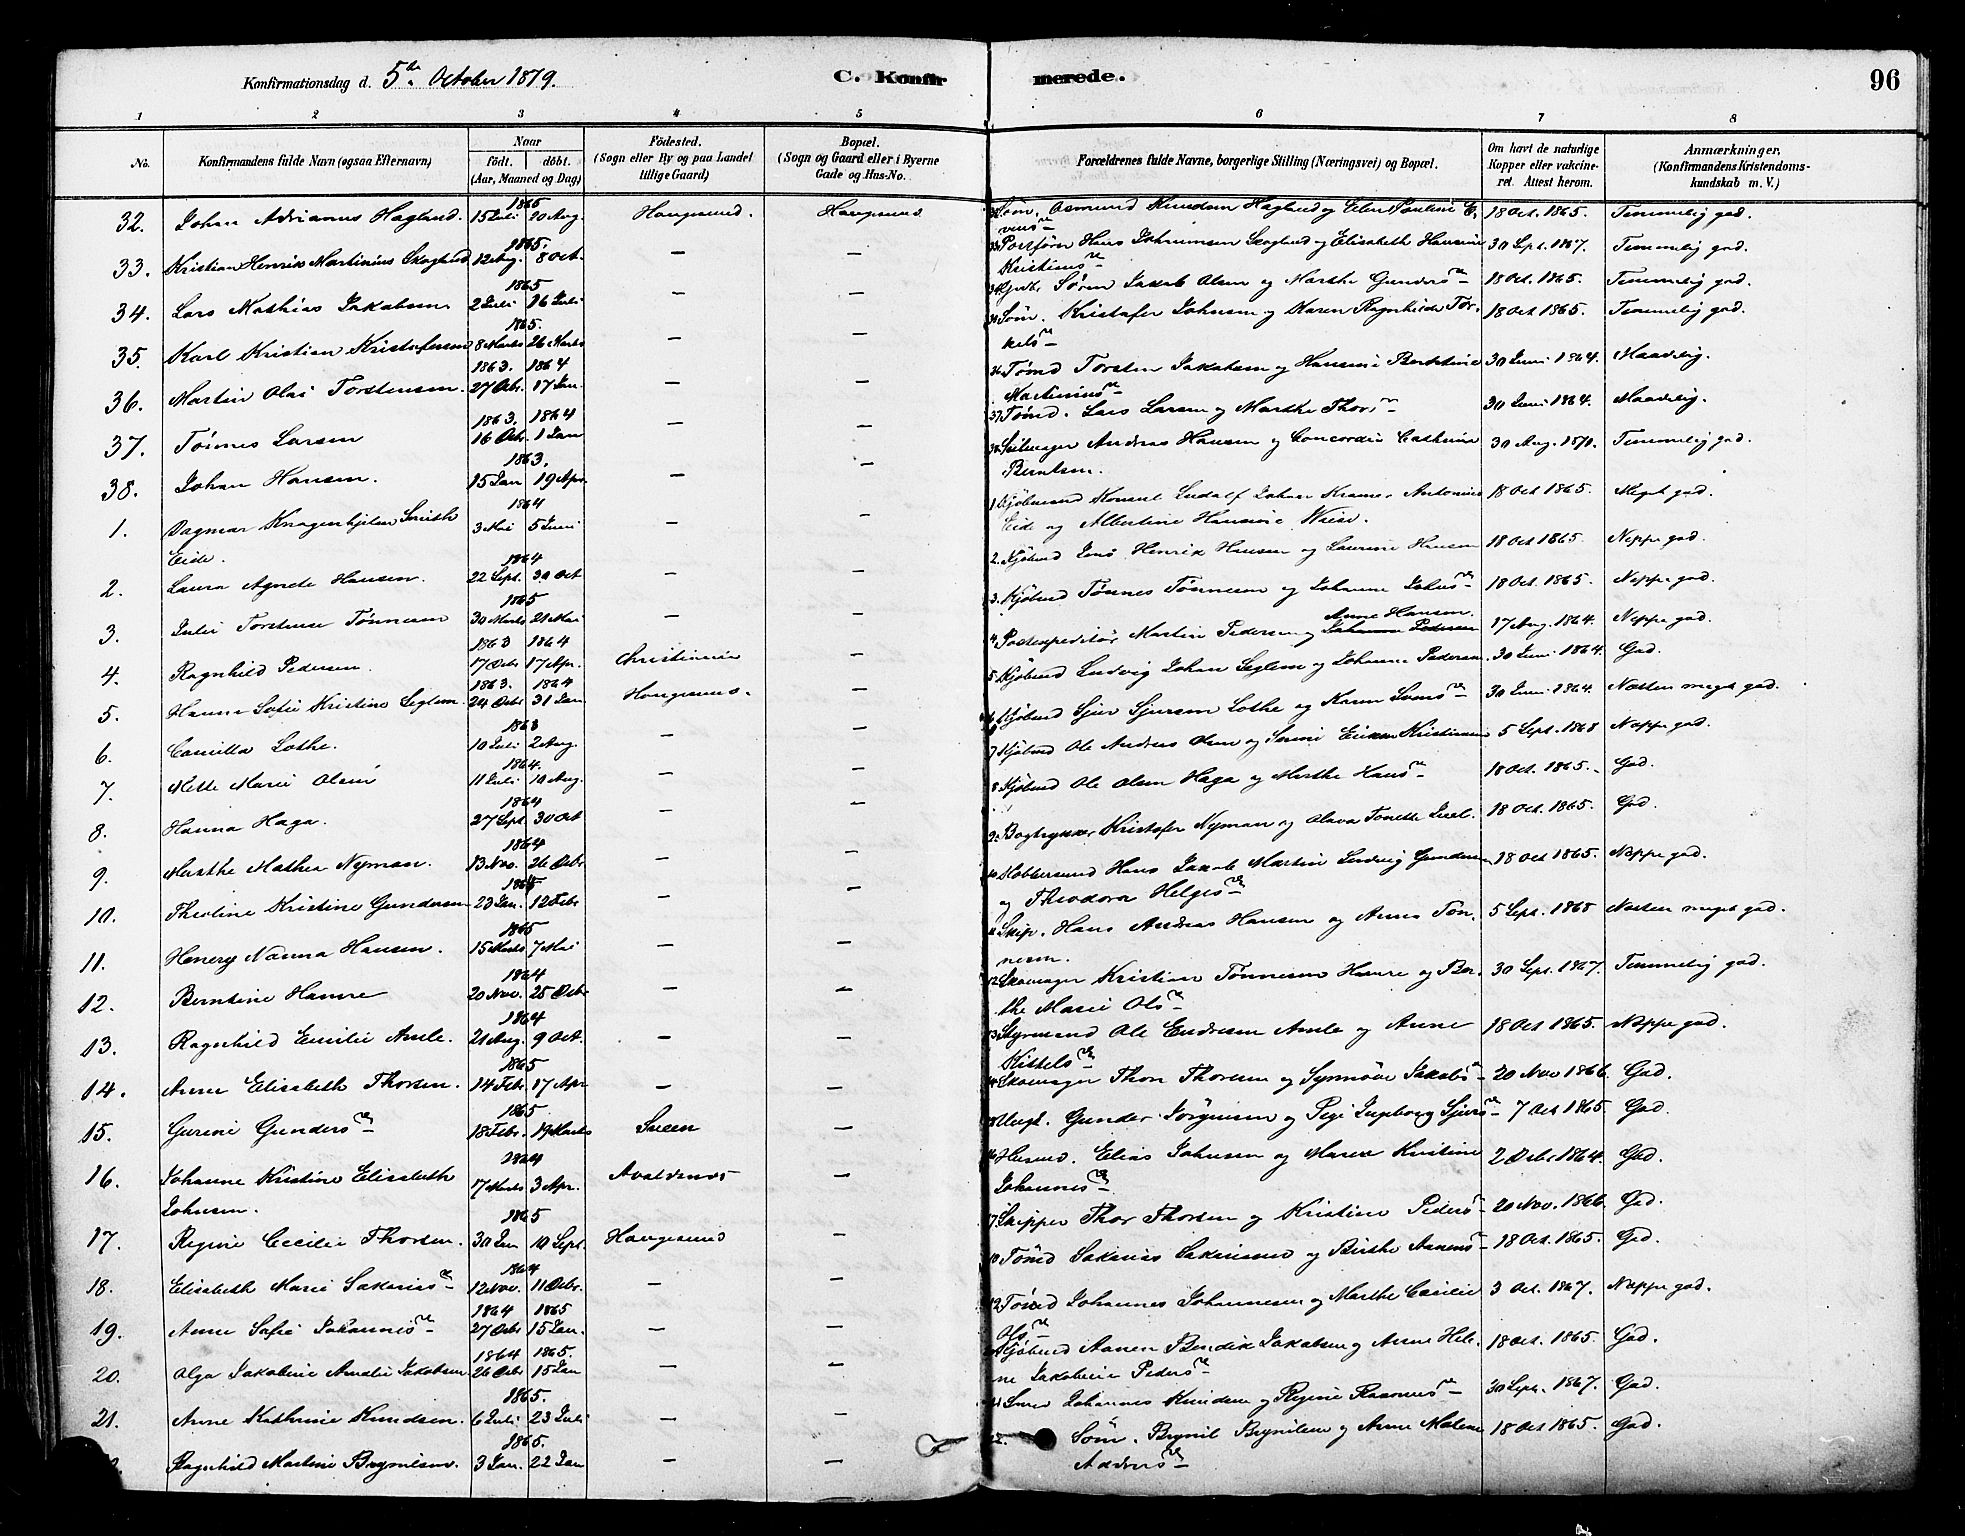 Konfirmationsdag d. 5te October 1879.
C. Konfir merede.
96
1 2 3 4 5 6 7 8
No. Konfirmandens fulde Navn (ogsaa Efternavn) Naar født. døbt. (Aar, Maaned og Dag) Födested. (Sogn eller By og paa Landet tillige Gaard) Bopæl. (Sogn og Gaard eller i Byerne Gade og Hus-No. Forældrenes fulde Navne, borgerlige Stilling (Næringsvei) og Bopæl. Om havt de naturlige Kopper eller vakcineret. Attest herom. Anmærkninger. (Konfirmandens Kristendomskundskab m. V.)
1865
32. Johan Adrianus Hagland. 15 Juli 20 Aug. Haugesund. Haugesund. Søm. Osmund Knudsen Hagland og Elen Pauline E. 18 Oct. 1865. Temmelig god.
1865.
33. Kristian Henrik Martinius Skoglund 12 Aug. 8 Oct. — — Postfører Hans Johannesen Skoglund og Elisabeth Hansine 30 Sept. 1867. Temmelig god.
Kristians
1865
34. Lars Mathias Jakobsen. 2 Juli 16 Juli — — Søren Jakob Olsen og Marthe Gunders 18 Oct. 1865. Temmelig god.
1865.
35. Karl Kristian Kristofersen 8 Marts 26 Marts — — Søm. Kristofer Johnsen og Karen Ragnhilde Tor- 18 Oct 1865. Temmelig god.
kels
1863. 1864
36. Martin Olai Torstensen. 27 Dcbr. 17 Jan — — Tømd Torsten Jakobsen og Hansine Berthine 30 Juni 1864. Maadelig.
Martinius
1863. 1864
37. Tönnes Larsen 16 Dcb. 1 Jan — — 37. Tømd. Lars Larsen og Marthe Thors 30 Juni 1864. Maadelig.
1863.
38. Johan Hansen. 15 Jan 19 Apr. — — Seilmager Andreas Hansen og Concordia Cathrine 30 Aug. 1870. Temmelig god.
Berntsen.
1864
1. Dagmar Knagenhjelm Smith 3 Mai 5 Juni — — 1. Kjøbmand Konsul Ludolf Johan Kramer Antonius 18 Oct 1865. Meget god.
Eide. Eide og Albertine Hansine Waise.
1864
2. Laura Agnete Hansen. 22 Sept. 30 Oct — — 2. Kjøbmd Jens Henrik Hansen og Laurine Hansen 18 Oct 1865. Neppe god.
1865
3. Julie Torstense Tønnesen 30 Marts 21 Mai — — 3. Kjøbmd Tønnes Tønnesen og Johanne Johns 18 Oct. 1865. Neppe god.
1863 1864
4. Ragnhild Pedersen. 17 Dcbr 17 Apr. Christiania — 4. Postexpeditør Martin Pedersen og Anne Hansen. Johanne Pedersen 17 Aug. 1864. Neppe god.
1863. 1864
5. Hanna Sofie Kristine Seglem. 24 Dcbr 31 Jan Haugesund. — 5. Kjøbmd Ludvig Johan Seglem og Johanne Pedersen 30 Juni 1864. God.
1863
6. Camilla Lothe. 10 Juli 2 Aug. — — 6. Kjøbmd Sjur Sjursen Lothe og Karen Svens 30 Juni 1864. Næsten meget god.
1864.
7. Mette Marie Olsen 11 Juli 10 Aug. — — 7. Kjøbmd Ole Andreas Olsen og Serine Eriken Kristiansen 5 Sept. 1868 Neppe god.
1864
8. Hanna Haga. 27 Sept. 30 Oct — — 8. Kjøbmd Ole Olsen Haga og Marthe Hans 18 Oct. 1865. God.
1864
9. Marthe Mathea Nyman. 13 Nov. 26 Dcbr — — 9. Bogtrykker Kristofer Nyman og Olava Tonette 18 Oct. 1865. God.
1865
10. Theoline Kristine Gundersen 23 Jan. 12 Febr — — Hans Jakob Martin Ludvig Gundersen 18 Oct 1865. Neppe god.
og Theodora Helges
1865
11. Henery Nanna Hansen. 15 Marts 7 Mai — — Skip. Hans Andreas Hansen og Anne Tøn- 5 Sept. 1868 Næsten meget god.
nesen.
1864
12. Berntine Hamre 20 Nov. 25 Dcbr — — 12. Skomager Kristian Tønnesen Hamre og Ber- 30 Sept. 1867. Temmelig god.
the Marie Ols
1864
13. Ragnhild Emilie Amle. 21 Aug. 9 Oct. — — Styrmand Ole Endresen Amle og Anne 18 Oct 1865. Neppe god.
Kittels
1865
14. Anne Elisabeth Thorsen. 14 Febr. 17 Apr — — Skomager Thor Thorsen og Synnøve Jakobs 20 Nov 1866. God.
1865.
15. Gurine Gunders 18 Febr. 19 Marts Sveen — Gunder Jørgensen og Ingeborg Sjurs 7 Oct 1865. God.
1864
16. Johanne Kristine Elisabeth 17 Marts 3 Apr. Avaldsnes — Husmd. Elias Johnsen og Maren Kristine 2 Dcbr 1864. God.
Johnsen. Johannes
1865
17. Regine Cecilie Thorsen. 30 Jan 10 Sept. Haugesund — Skipper Thor Thorsen og Kristine Peders 20 Nov. 1866. God.
1864
18. Elisabeth Marie Sakarias 12 Nov. 11 Dcbr. — — Tømd Sakarias Sakariassen og Birthe Aanens 18 Oct. 1865. God.
1864 1865
19. Anne Sofie Johannes 27 Dcbr 15 Jan. — — 19. Tømd Johannes Johannesen og Marthe Cecilie 3 Oct. 1867. Neppe god.
Ols
1864 1865.
20. Olga Jakobine Amalie Jakobsen 26 Dcbr 15 Jan — — Kjøbmd Aanen Bendik Jakobsen og Anne Hele- 18 Oct. 1865. God.
ne Jakobine Peders
1865.
21. Anne Kathrine Knudsen. 6 Juli 23 Juli — — Johannes Knudsen og Regine Rasmus 30 Sept. 1867. God.
1865.
Ragnhild Martine Brynilsen. 3 Jan. 22 Jan — — Søm. Brynil Brynilsen og Anne Malene 18 Oct 1865. God.
Anders